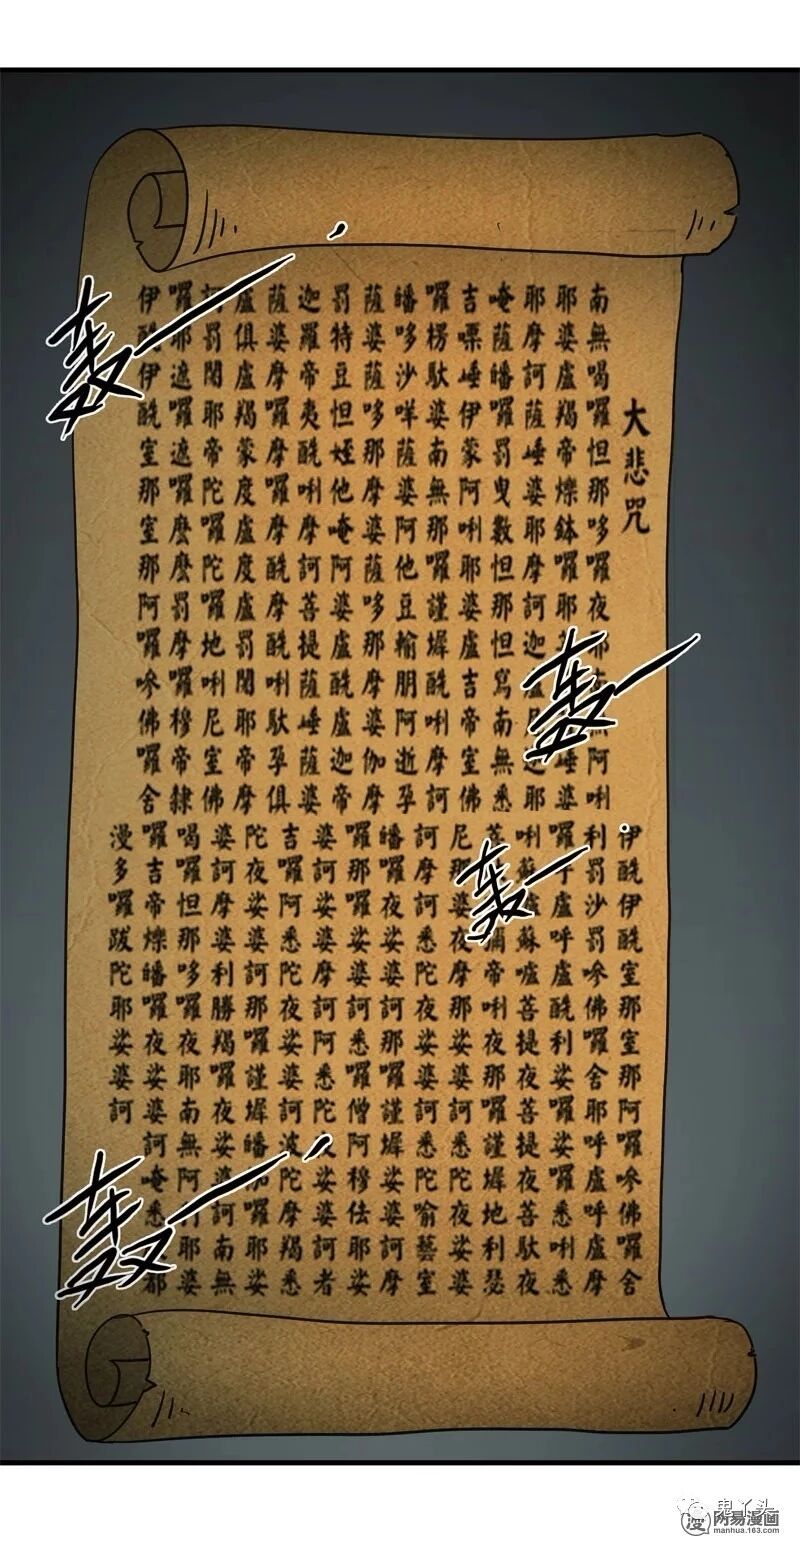 大悲咒
南無喝囉怛那哆囉夜耶無阿唎
耶婆盧羯帝爍鉢囉耶菩埵婆
耶摩訶薩埵婆耶摩訶迦盧尼迦耶
唵薩皤囉罰曳數怛那怛寫南無悉
吉㗚埵伊蒙阿唎耶婆盧吉帝室佛
囉楞馱婆南無那囉謹墀醯唎摩訶
皤哆沙咩薩婆阿他豆輸朋阿逝孕
薩婆薩哆那摩婆薩哆那摩婆伽摩
罰特豆怛姪他唵阿婆盧醯盧迦帝
迦羅帝夷醯唎摩訶菩提薩埵薩婆
薩婆摩囉摩囉摩醯摩醯唎馱孕俱
盧俱盧羯蒙度盧度盧罰闍耶帝摩
訶罰闍耶帝陀囉陀囉地唎尼室佛
囉耶遮囉遮囉麼麼罰摩囉穆帝隸
伊醯伊醯室那室那阿囉嘇佛囉舍
伊醯伊醯室那室那阿囉嘇佛囉舍
利罰沙罰嘇佛囉舍耶呼盧呼盧摩
囉呼盧呼盧醯利娑囉娑囉悉唎悉
唎蘇嚧蘇嚧菩提夜菩提夜菩馱夜
菩彌帝唎夜那囉謹墀地利瑟
尼那婆夜摩那娑婆訶悉陀夜娑婆
訶摩訶悉陀夜娑婆訶悉陀喻藝室
皤囉夜娑婆訶那囉謹墀娑婆訶摩
囉那囉娑婆訶悉囉僧阿穆佉耶娑
婆訶娑婆摩訶阿悉陀夜娑婆訶者
吉囉阿悉陀夜娑婆訶波陀摩羯悉
陀夜娑婆訶那囉謹墀皤伽囉耶娑
婆訶摩婆利勝羯囉夜娑婆訶南無
喝囉怛那哆囉夜耶南無阿唎耶
囉吉帝爍皤囉夜娑婆訶唵悉都
漫多囉跋陀耶娑婆訶
轰
轰
轰
轰
鬼丫头
网易漫画
manhua.163.com